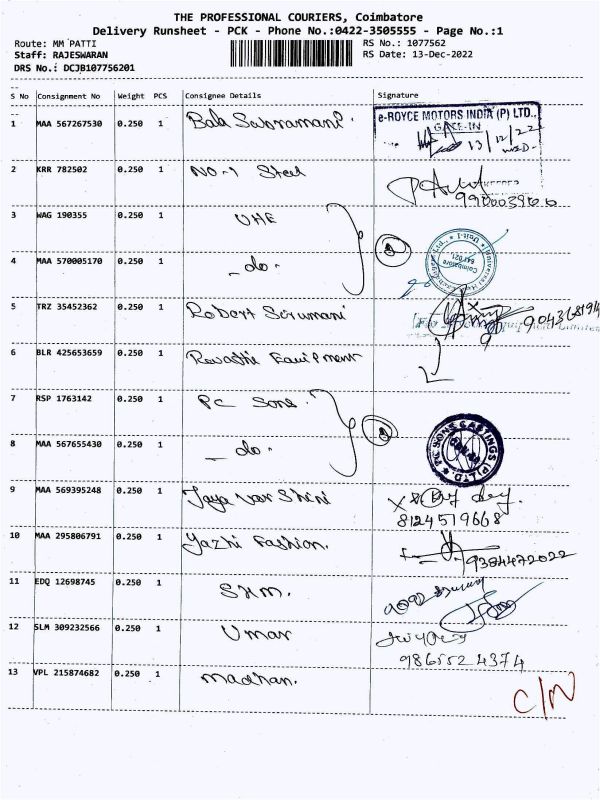 THE PROFESSIONAL COURIERS, Coimbatore
Delivery Runsheet - PCK - Phone No.:0422-3505555 - Page No.:1
Route: MM PATTI RS No.: 1077562
Staff: RAJESWARAN RS Date: 13-Dec-2022
DRS No.: DCJB107756201
S No Consignment No Weight PCS Consignee Details Signature
1 MAA 567267530 0.250 1 Bala Subramani. e-ROYCE MOTORS INDIA (P) LTD.,
GATE-IN
13/12/22
2 KRR 782502 0.250 1 NO-1 Steel
3 WAG 190355 0.250 1 UHE
4 MAA 570005170 0.250 1 - do - 2
5 TRZ 35452362 0.250 1 Robert
6 BLR 425653659 0.250 1 Revathi Equipment
7 RSP 1763142 0.250 1 PC Sons.
8 MAA 567655430 0.250 1 - do - 2 P.C SONS CASTINGS (P) LTD.
9 MAA 569395248 0.250 1 Jaya Varshini
8124519668
10 MAA 295806791 0.250 1 Yazhi Fashion. 9384472022
11 EDQ 12698745 0.250 1 SHM.
12 SLM 309232566 0.250 1 Umar
9865524374
13 VPL 215874682 0.250 1 Madhan.
C/N